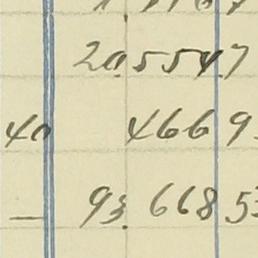 205547
40 4669
— 93 6685